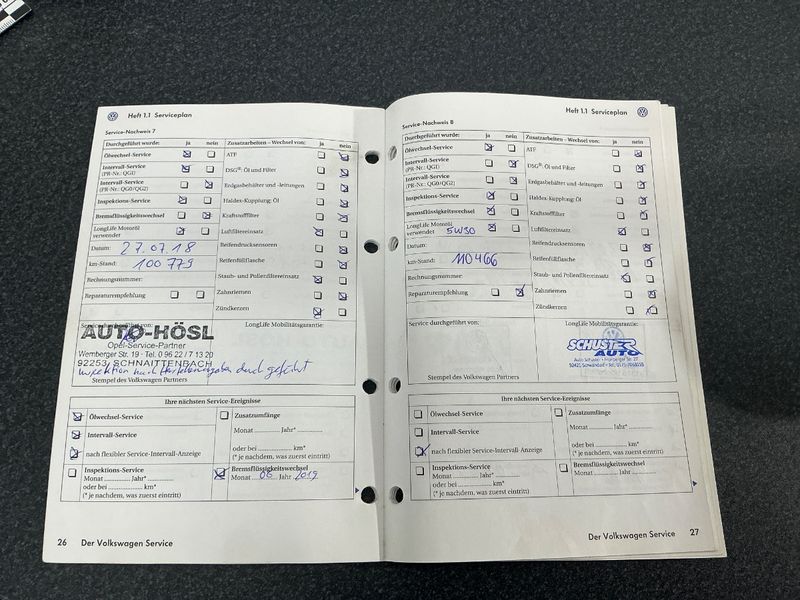 Heft 1.1 Serviceplan
Service-Nachweis 7
Durchgeführt wurde: ja nein
Ölwechsel-Service
Intervall-Service
(PR-Nr.: QGI)
Intervall-Service
(PR-Nr.: QG0/QG2)
Inspektions-Service
Bremsflüssigkeitswechsel
LongLife Motoröl
verwendet
Datum: 27.07.18
km-Stand: 100 779
Rechnungsnummer:
Reparaturempfehlung
Zusatzarbeiten – Wechsel von: ja nein
ATF
DSG®: Öl und Filter
Erdgasbehälter und -leitungen
Haldex-Kupplung: Öl
Kraftstofffilter
Luftfiltereinsatz
Reifendrucksensoren
Reifenfüllflasche
Staub- und Pollenfiltereinsatz
Zahnriemen
Zündkerzen
Service durchgeführt von:
LongLife Mobilitätsgarantie:
AUTO-HÖSL
Opel-Service-Partner
Wernberger Str. 19 · Tel. 0 96 22 / 7 13 20
92253 SCHNAITTENBACH
Inspektion nach Herstellerangaben durchgeführt
Stempel des Volkswagen Partners
Ihre nächsten Service-Ereignisse
Ölwechsel-Service
Intervall-Service
nach flexibler Service-Intervall-Anzeige
Inspektions-Service
Monat Jahr*
oder bei km*
(* je nachdem, was zuerst eintritt)
Zusatzumfänge
Monat Jahr*
oder bei km*
(* je nachdem, was zuerst eintritt)
Bremsflüssigkeitswechsel
Monat 06 Jahr 2019
26 Der Volkswagen Service
Heft 1.1 Serviceplan
Service-Nachweis 8
Durchgeführt wurde: ja nein
Ölwechsel-Service
Intervall-Service
(PR-Nr.: QGI)
Intervall-Service
(PR-Nr.: QG0/QG2)
Inspektions-Service
Bremsflüssigkeitswechsel
LongLife Motoröl
verwendet 5W30
Datum:
km-Stand: 110 466
Rechnungsnummer:
Reparaturempfehlung
Zusatzarbeiten – Wechsel von: ja nein
ATF
DSG®: Öl und Filter
Erdgasbehälter und -leitungen
Haldex-Kupplung: Öl
Kraftstofffilter
Luftfiltereinsatz
Reifendrucksensoren
Reifenfüllflasche
Staub- und Pollenfiltereinsatz
Zahnriemen
Zündkerzen
Service durchgeführt von:
LongLife Mobilitätsgarantie:
SCHUSTER
AUTO
Stempel des Volkswagen Partners
Ihre nächsten Service-Ereignisse
Ölwechsel-Service
Intervall-Service
nach flexibler Service-Intervall-Anzeige
Inspektions-Service
Monat Jahr*
oder bei km*
(* je nachdem, was zuerst eintritt)
Zusatzumfänge
Monat Jahr*
oder bei km*
(* je nachdem, was zuerst eintritt)
Bremsflüssigkeitswechsel
Monat Jahr
Der Volkswagen Service 27